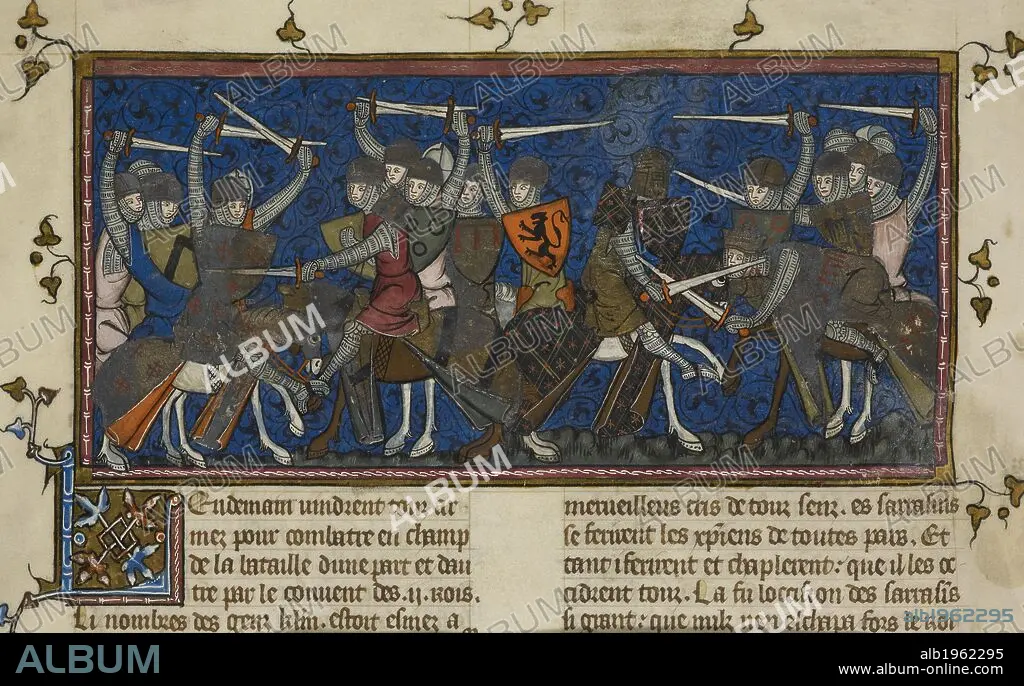 Lendemain vindrent tout ar
mez pour combatre en champ
de la bataille dune part et dau
tre par le couvent des .ij. rois.
Li nombres des genz klm. estoit esmez a
merveilleus cris de touz senz. es sarrasins
se ferirent les xpiens de toutes pars. Et
tant i ferirent et chaplerent: que il les oc
cidrent touz. La fu loccision des sarrasins
si grant: que nulz nen eschapa fors le roi
ALBUM
alb1962295
ALBUM
alb1962295
www.album-online.com